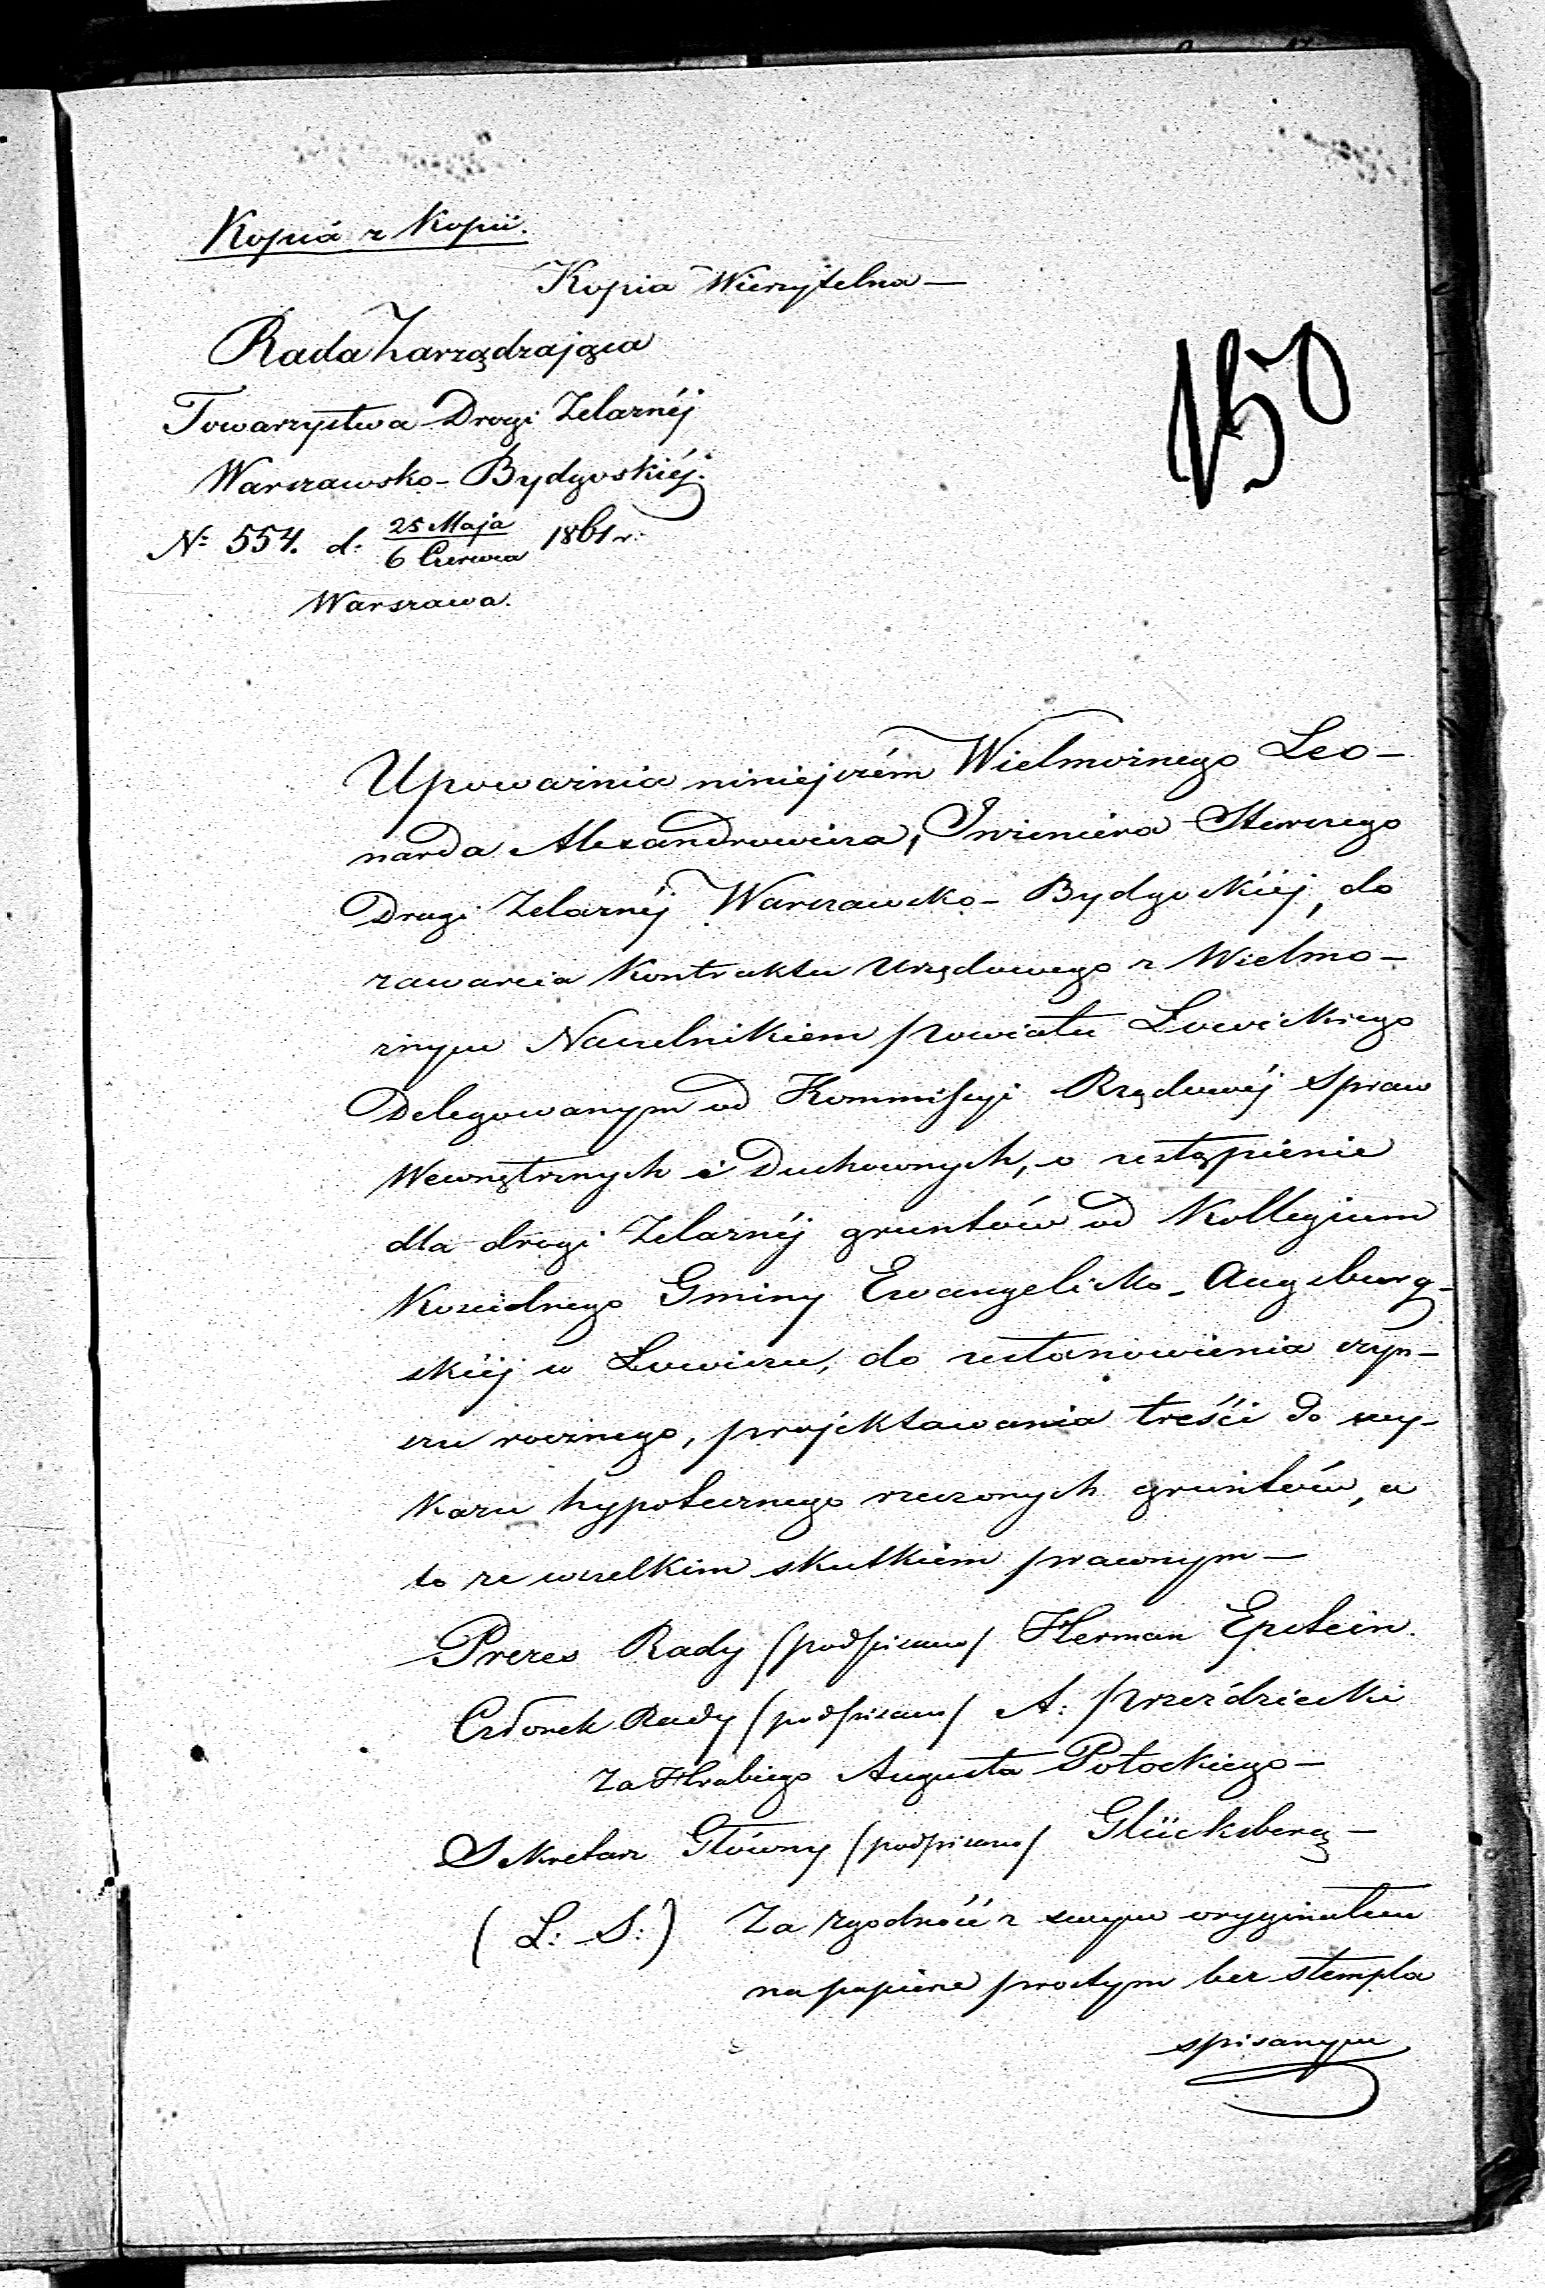 Kopia z Kopii.
Kopia Wierzytelna —
Rada Zarządzająca
150
Towarzystwa Drogi Żelaznéj
Warszawsko-Bydgoskiéj.
N: 554. d: 25 Maja / 6 Czerwca 1861 r:
Warszawa.
Upoważnia niniejszém Wielmożnego Leo-
narda Alexandrowicza, Inżeniéra Starszego
Drogi Żelaznéj Warszawsko-Bydgoskiéj, do
zawarcia Kontraktu Urzędowego z Wielmo-
żnym Naczelnikiem Powiatu Łowickiego
Delegowanym od Kommissyi Rządowéj Spraw
Wewnętrznych i Duchownych, o ustąpienie
dla drogi Żelaznéj gruntów od Kollegium
Kościelnego Gminy Ewangelicko-Augsburg-
skiéj w Łowiczu, do ustanowienia czyn-
szu rocznego, projektowania treści do wy-
kazu hypotecznego rzeczonych gruntów, a
to ze wszelkim skutkiem prawnym —
Prezes Rady /podpisano/ Herman Epstein.
Członek Rady /podpisano/ A: Przeździecki
Za Hrabiego Augusta Potockiego —
Sekretarz Główny /podpisano/ Glücksberg —
(L: S:) Za zgodność z swym oryginałem
na papierze prostym bez stempla
spisanym